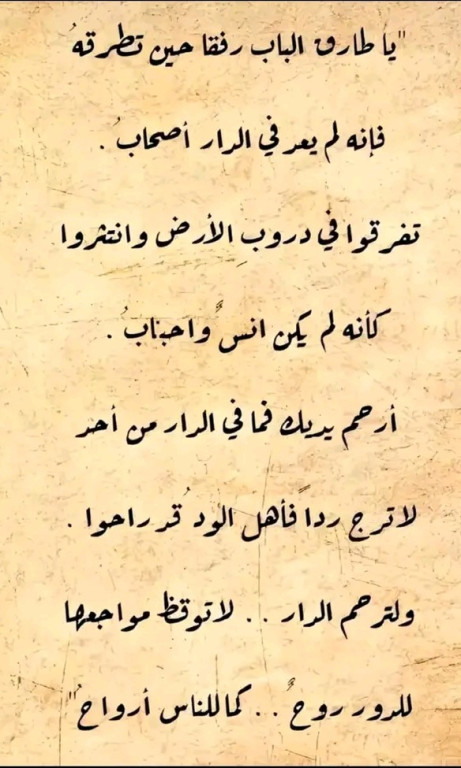 "يا طارق الباب رفقا حين تطرقهُ
فإنه لم يعد في الدار أصحابُ .
تفرقوا في دروب الأرض وانتثروا
كأنه لم يكن انسٌ واحبابُ .
أرحم يديك فما في الدار من أحد
لا ترج رداً فأهل الودُ قد راحوا .
ولترحم الدار . . لا توقظ مواجعها
للدور روحٌ . . كما للناس أرواحُ"